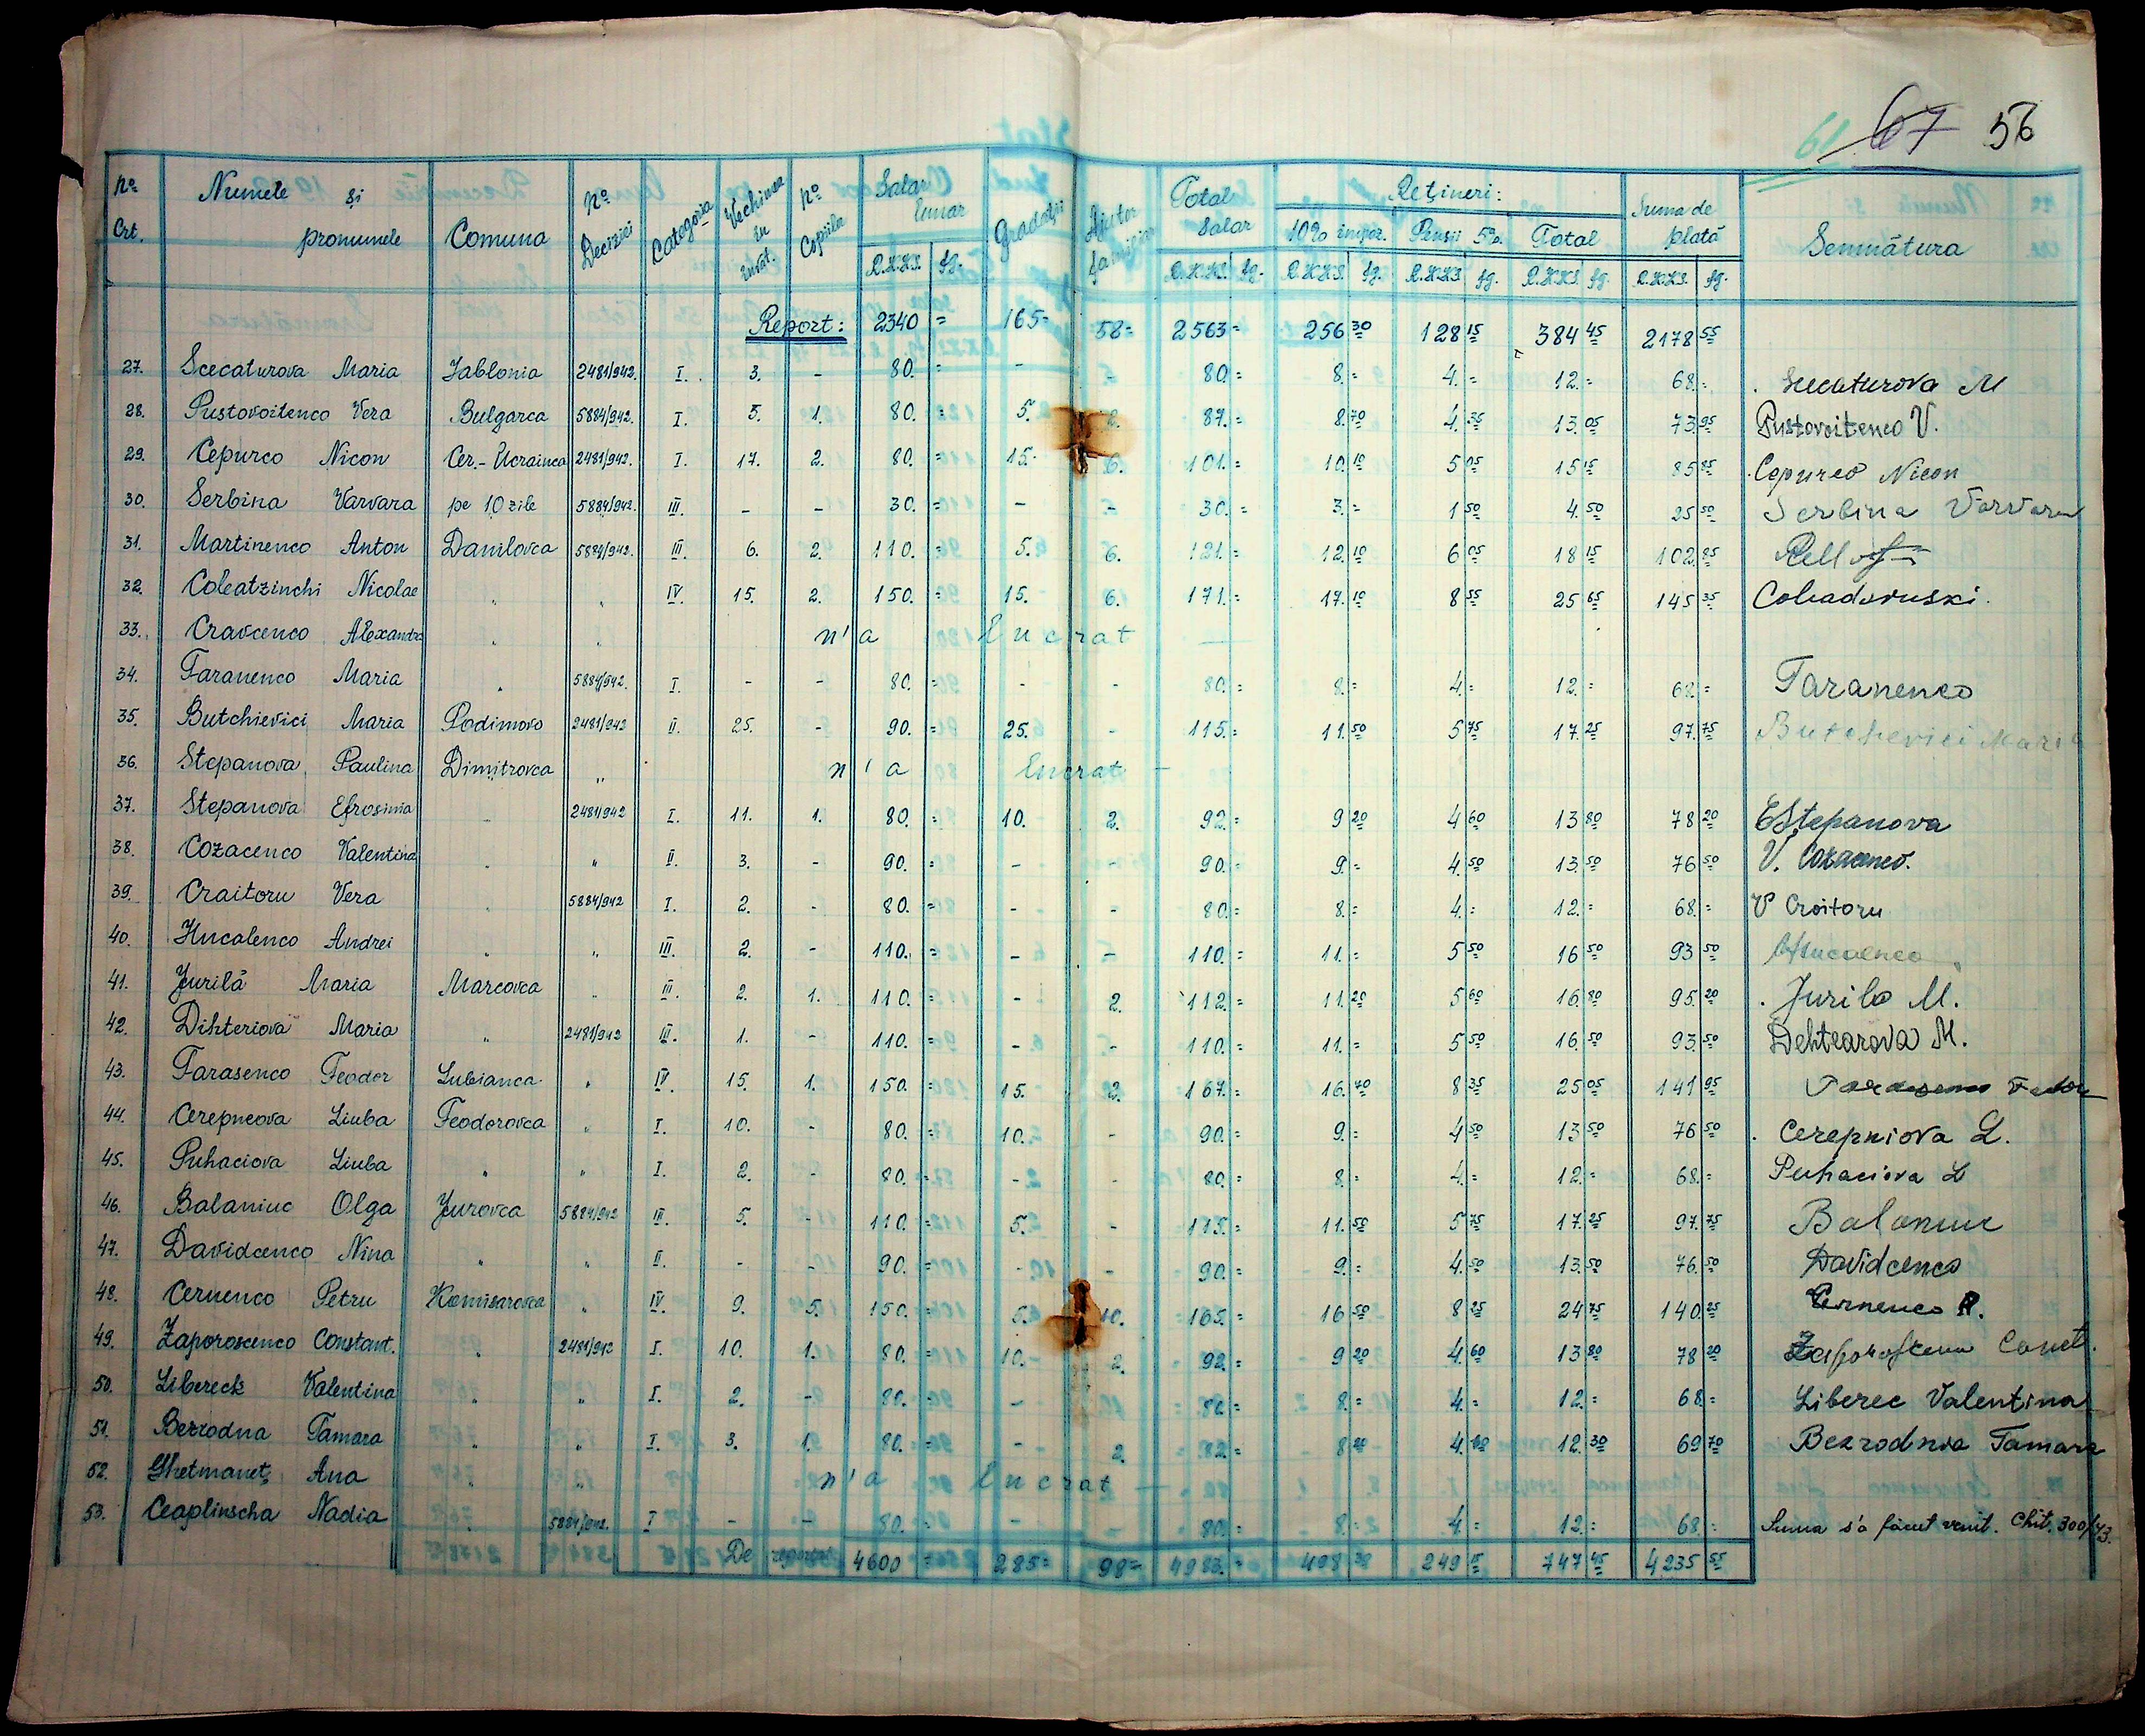 61 67 56
Nº Crt. Numele și pronumele Comuna Nº Deciziei Categoria Vechimea în învăt. Nº Copiilor Salar lunar Gradații Ajutor familiar Total Salar Rețineri: Suma de plată Semnătura
10% impoz. Pensii 5%. Total
R.K.K.S. fg. R.K.K.S. fg. R.K.K.S. fg. R.K.K.S. fg. R.K.K.S. fg. R.K.K.S. fg.
Report: 2340 = 165= 58= 2563= 256 30 128 15 384 45 2178 55
27. Scecaturova Maria Jablonia 2481/942. I. 3. - 80. = - 80. = 8. = 4. = 12. = 68. = Scecaturova M
28. Pustovoitenco Vera Bulgarca 5884/942. I. 5. 1. 80. = 5. 2. 87. = 8. 70 4. 35 13. 05 73. 95 Pustovoitenco V.
29. Cepurco Nicon Cer.-Ucrainca 2481/942. I. 17. 2. 80. = 15. 6. 101. = 10. 10 5 05 15 15 85 85 Cepurco Nicon
30. Serbina Varvara pe 10 zile 5884/942. III. - - 30. = - - 30. = 3. - 1 50 4. 50 25 50 Serbina Varvara
31. Martinenco Anton Danilovca 5884/942. III. 6. 2. 110. = 5. 6. 121. = 12. 10 6 05 18 15 102. 85
32. Coleatzinchi Nicolae " " IV. 15. 2. 150. = 15. 6. 171. = 17. 10 8 55 25 65 145 35
33. Cravcenco Alexandra " " n'a lucrat —
34. Taranenco Maria " 5884/942. I. - - 80. = - - 80. = 8. = 4. = 12. = 68. = Taranenco
35. Butchievici Maria Podimovo 2481/942 II. 25. - 90. = 25. - 115. = 11. 50 5 75 17. 25 97. 75 Butchevici Maria
36. Stepanova Paulina Dimitrovca " n'a lucrat —
37. Stepanova Efrosinia " 2481/942 I. 11. 1. 80. = 10. 2. 92. = 9 20 4 60 13 80 78 20 EStepanova
38. Cozacenco Valentina " " II. 3. - 90. = - - 90. = 9. = 4. 50 13. 50 76 50 V. Cozacenco.
39. Craitoru Vera " 5884/942 I. 2. - 80. = - - 80. = 8. = 4. = 12. = 68. = V Croitoru
40. Hucalenco Andrei " " III. 2. - 110. = - - 110. = 11. = 5 50 16 50 93 50
41. Jurilă Maria Marcovca " III. 2. 1. 110. = - 2. 112. = 11. 20 5 60 16. 80 95. 20 Jurilo M.
42. Dihteriova Maria " 2481/942 III. 1. - 110. = - - 110. = 11. = 5 50 16. 50 93. 50 Dehtearova M.
43. Tarasenco Feodor Lubianca " IV. 15. 1. 150. = 15. 2. 167. = 16. 70 8 35 25 05 141 95
44. Cerepneova Liuba Feodorovca " I. 10. - 80. = 10. - 90. = 9. = 4 50 13 50 76 50 Cerepniova L.
45. Puhaciova Liuba " " I. 2. - 80. = - - 80. = 8. = 4. = 12. = 68. = Puhaciova L
46. Balaniuc Olga Jurovca 5884/942 III. 5. - 110. = 5. - 115. = 11. 50 5 75 17. 25 97. 75 Balaniuc
47. Davidcenco Nina " " II. - - 90. = - - 90. = 9. = 4. 50 13. 50 76. 50 Davidcenco
48. Cernenco Petru Komisarovca " IV. 9. 5. 150. = 5. 10. 165. = 16 50 8 25 24 75 140. 25 Cernenco P.
49. Zaporoscenco Constant. " 2481/942 I. 10. 1. 80. = 10. 2. 92. = 9 20 4. 60 13 80 78 20
50. Libereck Valentina " " I. 2. - 80. = - 80. = 8. = 4. = 12. = 68. = Liberec Valentina
51. Bezrodna Tamara " " I. 3. 1. 80. = - 2. 82. = 8 20 4. 10 12. 30 69 70 Bezrodnia Tamara
52. Ghetmaneț Ana " " n'a lucrat —
53. Ceaplinscha Nadia " 5884/942. I - - 80. = - - 80. = 8. = 4. = 12. = 68. = Suma s'a făcut venit. Chit. 300/43.
De reportat 4600 = 285= 98= 4983. = 498 30 249 15 747 45 4235 55